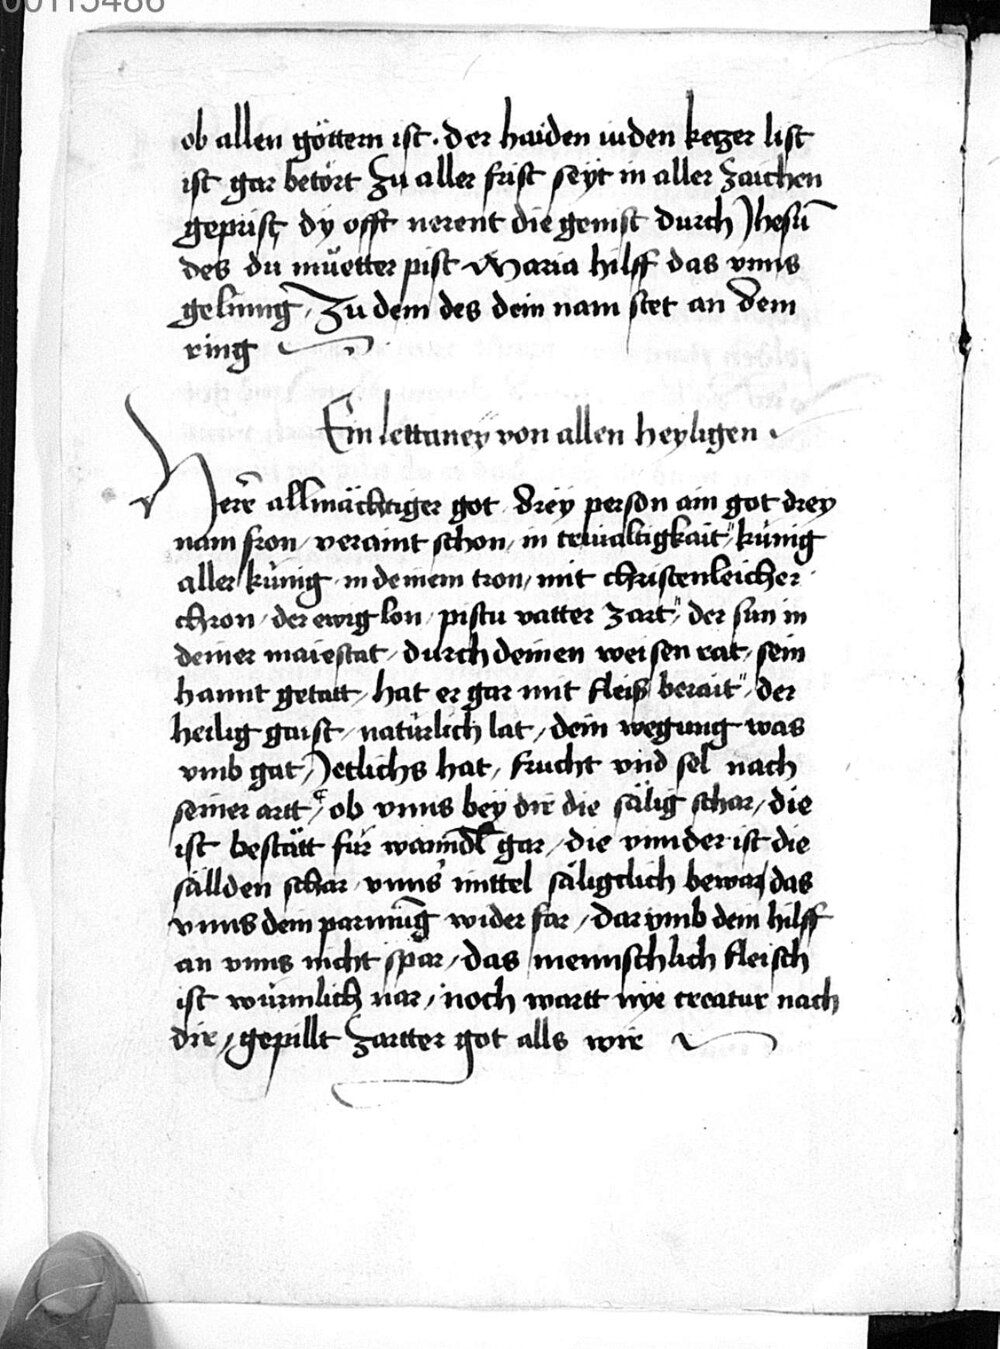 00115486
ob allen göttern ist · der haiden iuden keczer list
ist gar betört zu aller frist seyt in aller zaichen
geprist dy offt nerent die genist durch Jhesū
des du müetter pist Maria hilff das vnns
gelinng zu dem des dein nam stet an dem
ring
Ein lettaney von allen heyligen ·
Herr allmächtiger got drey person am got drey
nam fron / veraint schon / in triualtigkait " künig
aller künig in deinem tron / mit christenleicher
chron / der ewig lon / pistu vatter zart " der sun in
deiner maiestat / durch deinen weisen rat / sein
hannt getatt / hat er gar mit fleiß berait " / der
heilig gaist / natürlich lat / dein wegung was
vmb gat / Jetlichs hat / frucht vnd sel nach
seiner artt / ob vnns bey dir die sälig schar / die
ist bestätt für wanndl gar / die vnnder ist die
sällden schar / vnns mittel säligclich bewar / das
vnns dein parmūg wider far / dar vmb dein hilff
an vnns nicht spar / das mennschlich fleisch
ist würmlich nar / noch wartt nye creatur nach
dir / gepillt zartter got alls wir